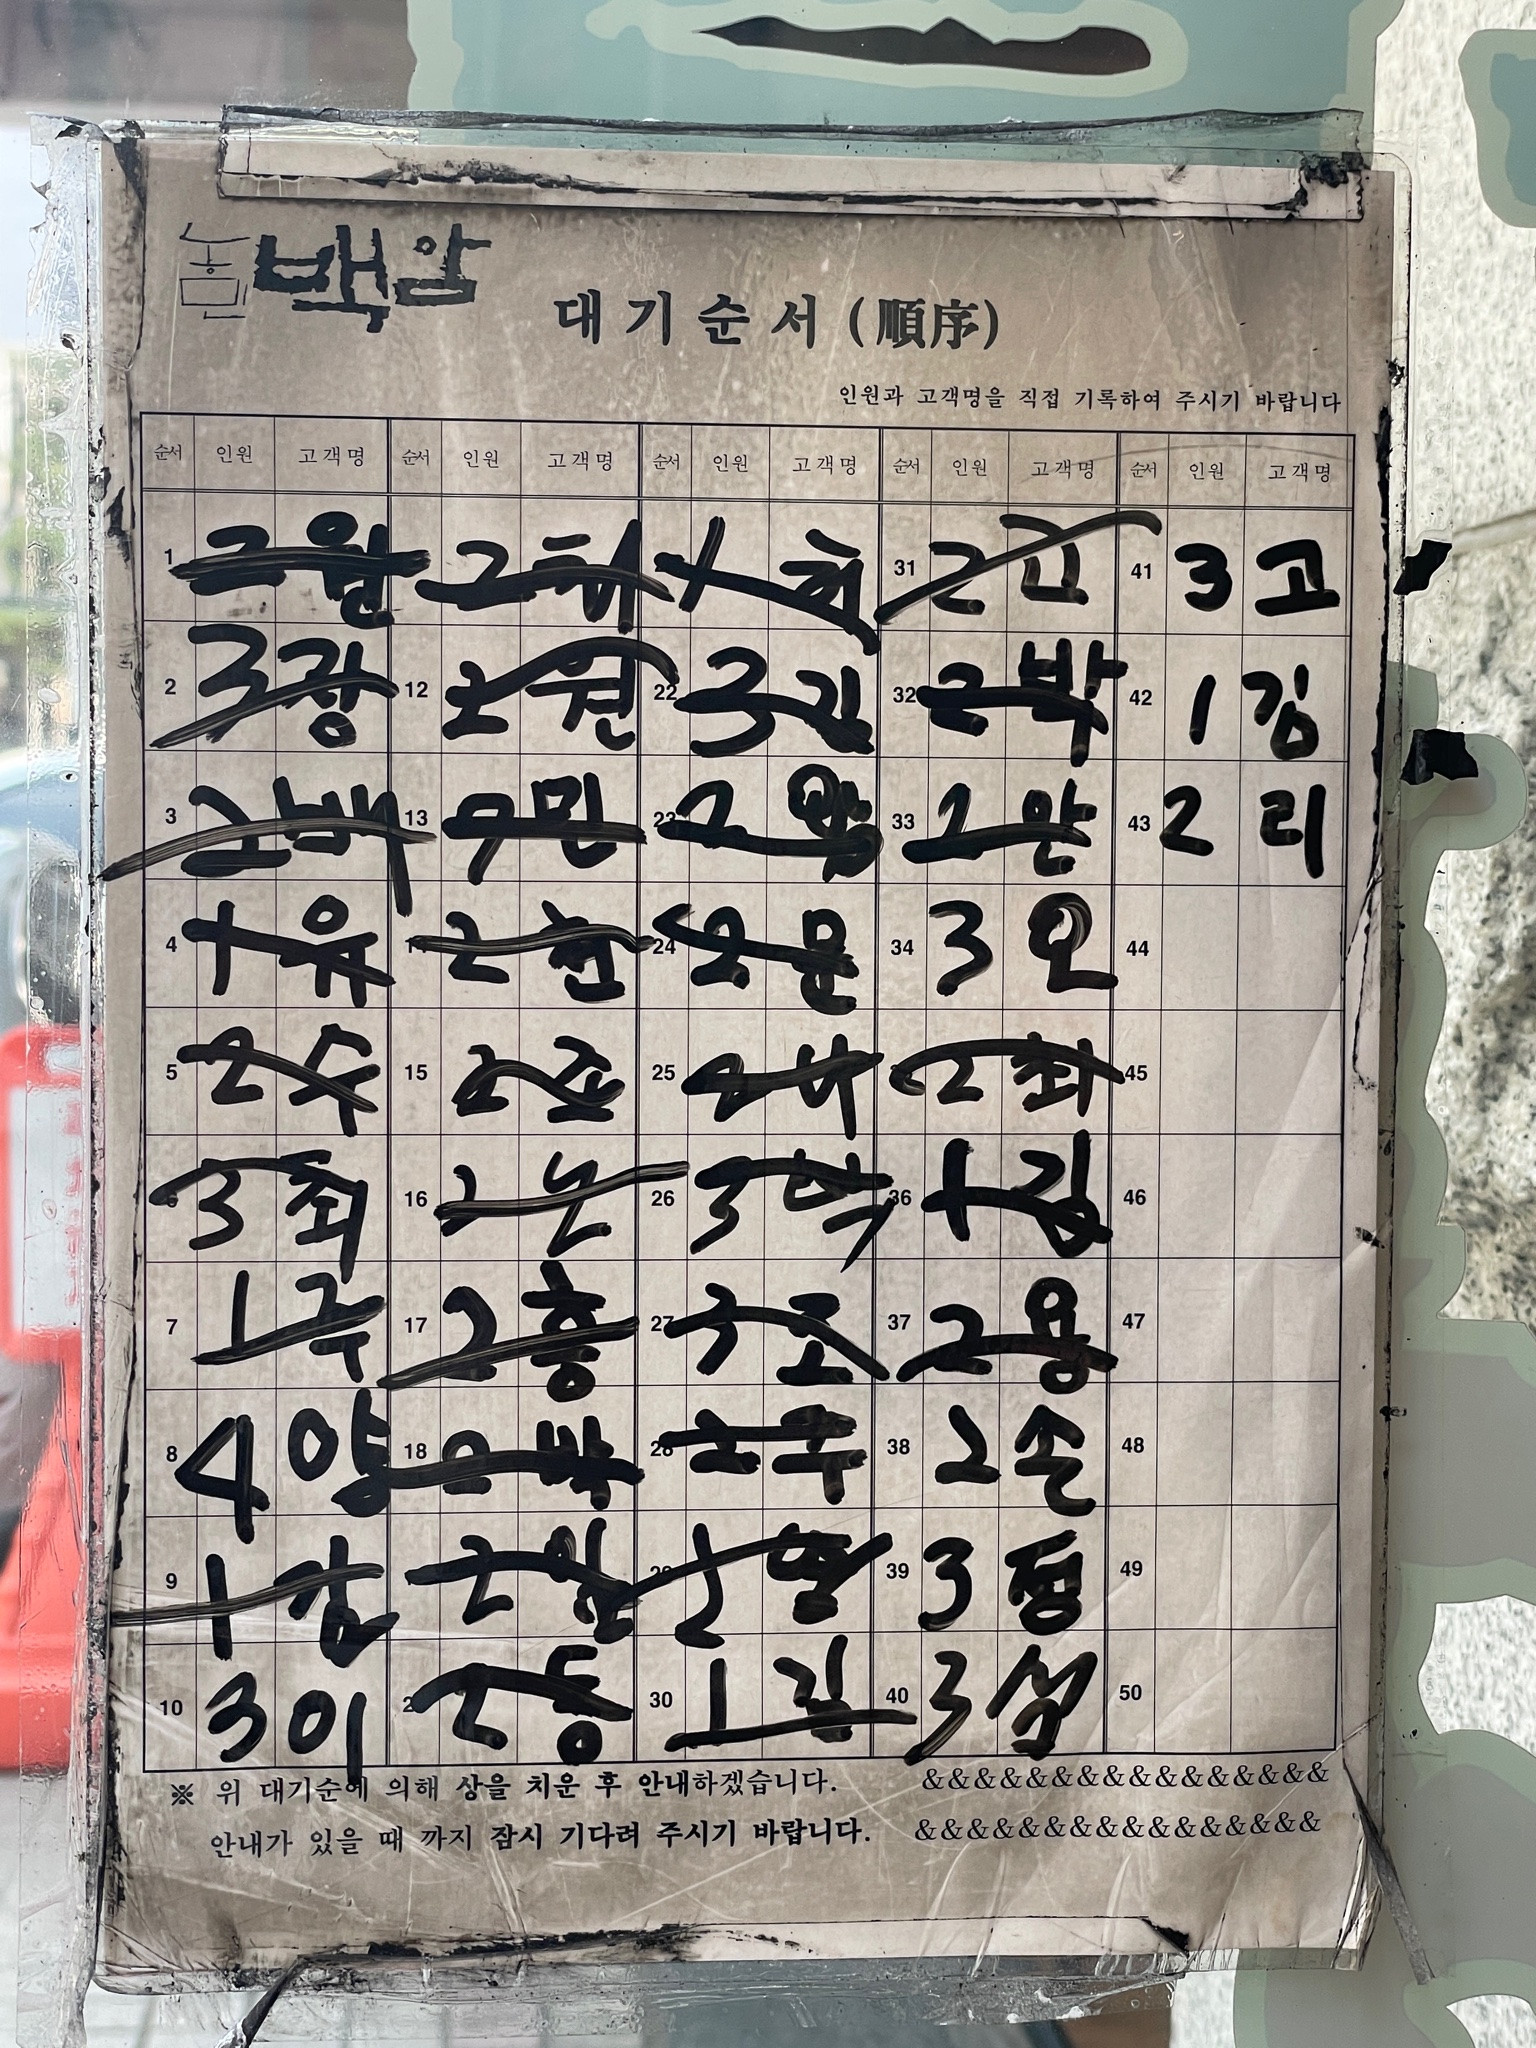 농민 백암
대기순서 (順序)
인원과 고객명을 직접 기록하여 주시기 바랍니다
순서 인원 고객명 순서 인원 고객명 순서 인원 고객명 순서 인원 고객명 순서 인원 고객명
1 2 원 2 1 31 2 고 41 3 고
2 3 광 12 2 원 22 3 김 32 2 박 42 1 김
3 2 백 13 민 23 2 33 2 안 43 2 리
4 1 유 14 2 현 24 2 문 34 3 오 44
5 2 수 15 2 조 25 2 2 최 45
6 3 최 16 2 26 3 박 36 1 김 46
7 1 주 17 2 홍 27 3 조 37 2 용 47
8 4 양 18 2 박 28 2 주 38 2 손 48
9 1 김 2 29 2 39 3 정 49
10 3 이 2 동 30 1 김 40 3 설 50
※ 위 대기순에 의해 상을 치운 후 안내하겠습니다. &&&&&&&&&&&&&&&&
안내가 있을 때 까지 잠시 기다려 주시기 바랍니다. &&&&&&&&&&&&&&&&